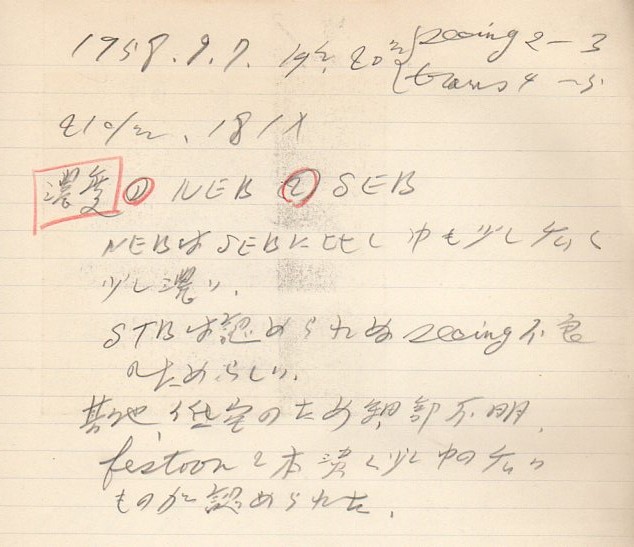 1958.9.7. 19h 20m { seeing 2-3
trans 4-5
210m/m. 181X
濃度 ① NEB ② SEB
NEBはSEBに比し巾も少し広く
少し濃い.
STBは認められぬ seeing 不良
のためらしい.
のため細部不明.
festoon 2本 淡く少し巾の広い
ものが認められた.